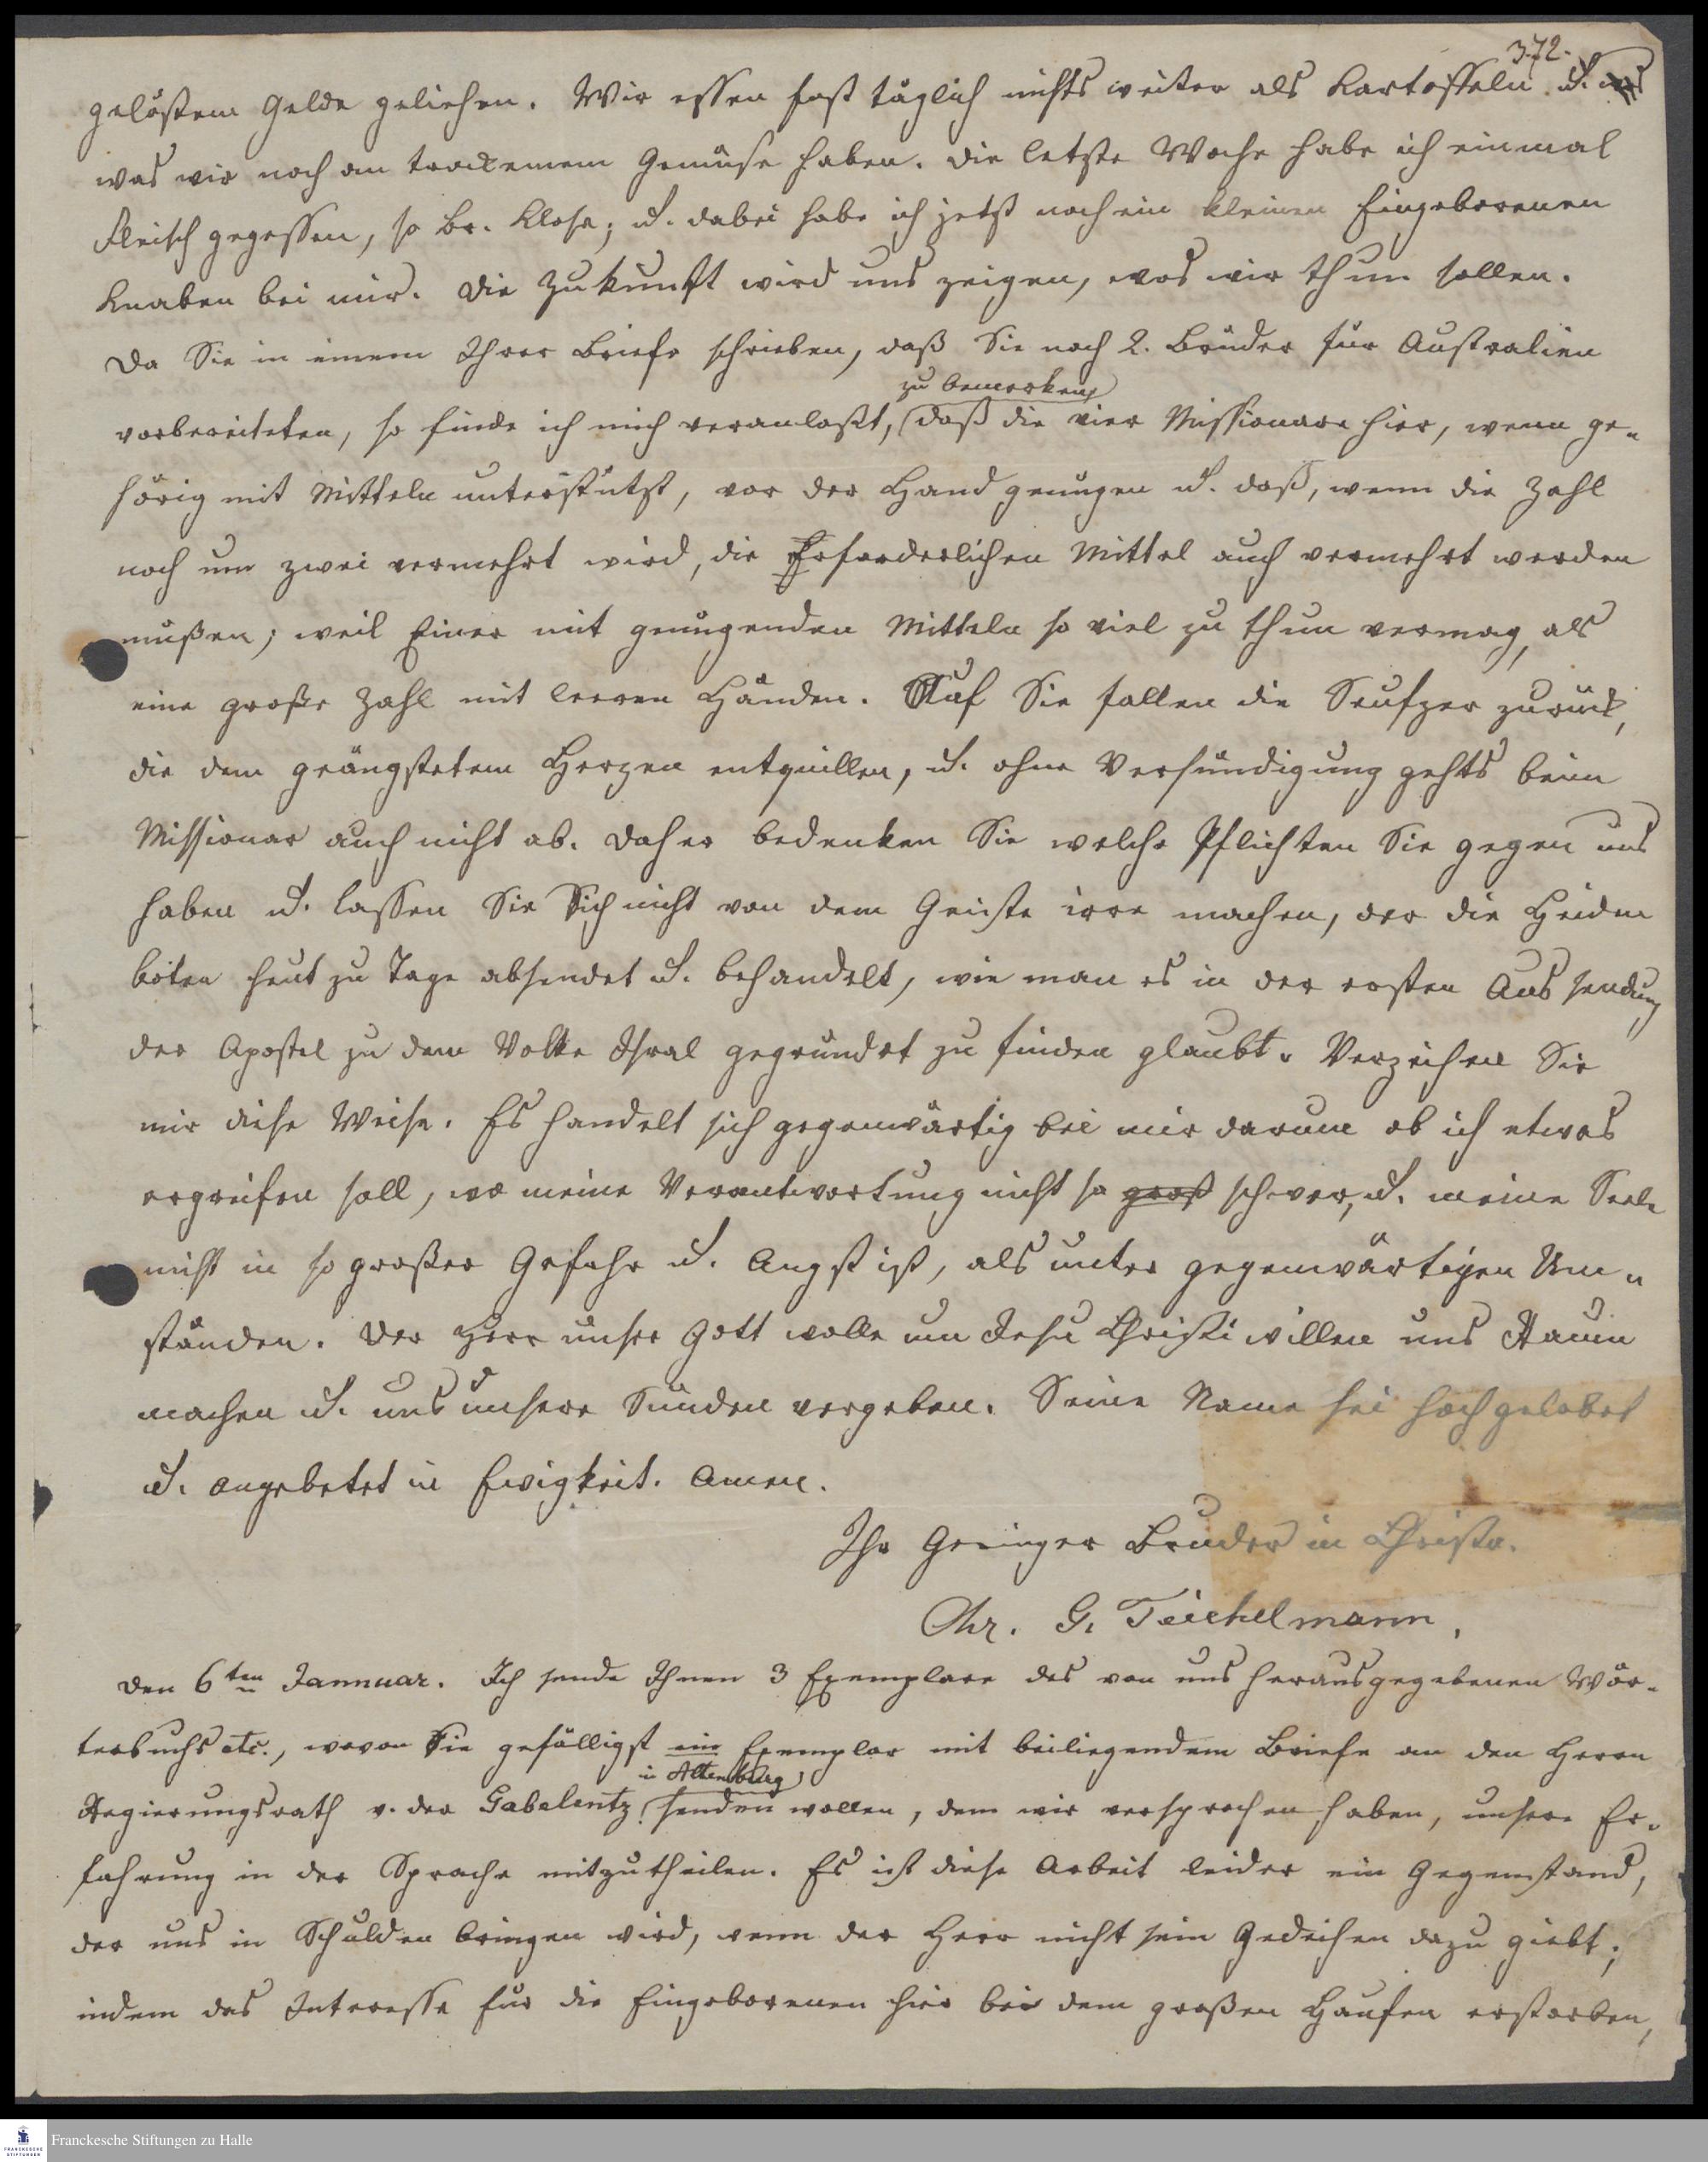 372.
gelößtem Gelde geliehen. Wir essen fast täglich nichts weiter als Kartoffeln u.
was wir noch an trockenem Gemüse haben. Die letzte Woche habe ich einmal
Fleisch gegessen, so Br. Klose; u. dabei habe ich jetzt noch ein kleinen Eingeborenen
Knaben bei mir. Die Zukunft wird uns zeigen, was wir thun sollen.
Da Sie in einem Ihrer Briefe schrieben, daß Sie noch 2. Brüder für Australien
zu bemerken,
vorbereiteten, so finde ich mich veranlaßt, daß die vier Missionare hier, wenn ge-
hörig mit Mitteln unterstützt, vor der Hand genügen u. daß, wenn die Zahl
noch um zwei vermehrt wird, die Erforderlichen Mittel auch vermehrt werden
müßen; weil Einer mit genügenden Mitteln so viel zu thun vermag, als
eine große Zahl mit leeren Händen. Auf Sie fallen die Seufzer zurück,
die dem geängstetem Herzen entquillen, u. ohne Versündigung gehts beim
Missionar auch nicht ab. Daher bedenken Sie welche Pflichten Sie gegen uns
haben u. lassen Sie Sich nicht von dem Geiste irre machen, der die Heiden
boten heut zu Tage absendet u. behandelt, wie man es in der ersten Aussendung
der Apostel zu dem Volke Isral gegründet zu finden glaubt. Verzeihen Sie
mir diese Weise. Es handelt sich gegenwärtig bei mir darum ob ich etwas
ergreifen soll, wo meine Verantwortung nicht so groß schwer, u. meine Seele
nicht in so großer Gefahr u. Angst ist, als unter gegenwärtigen Um-
ständen. Der Herr unser Gott wolle um Jesu Christi willen uns Raum
machen u. uns unsere Sünden vergeben. Seine Name sei hochgelobet
u. angebetet in Ewigkeit. Amen.
Ihr Geringer Bruder in Christo.
Chr. G. Teichelmann.
Den 6ten Jannuar. Ich sende Ihnen 3 Exemplare des von uns herausgegebenen Wör-
terbuchs etc., wovon Sie gefälligst ein Exemplar mit beiliegendem Briefe an den Herrn
in Altenburg
Regierungsrath v. der Gabelentz senden wollen, dem wir versprochen haben, unsere Er-
fahrung in der Sprache mitzutheilen. Es ist diese Arbeit leider ein Gegenstand,
der uns in Schulden bringen wird, wenn der Herr nicht sein Gedeihen dazu giebt;
indem das Interesse für die Eingeborenen hier bei dem großen Haufen erstorben,
Franckesche Stiftungen zu Halle
FRANCKESCHE
STIFTUNGEN